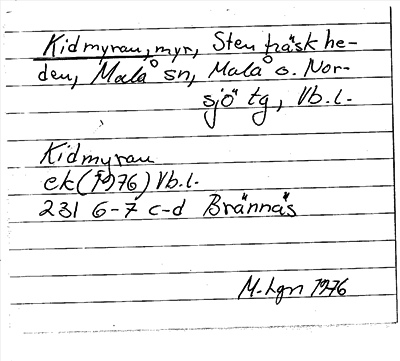 Kidmyran, myr, Stenträskhe-
den, Malå sn, Malå o. Nor-
sjö tg, Vb.l.
Kidmyran
ek (1976) Vb.l.
231 6-7 c-d Brännäs
M. Lgn 1976